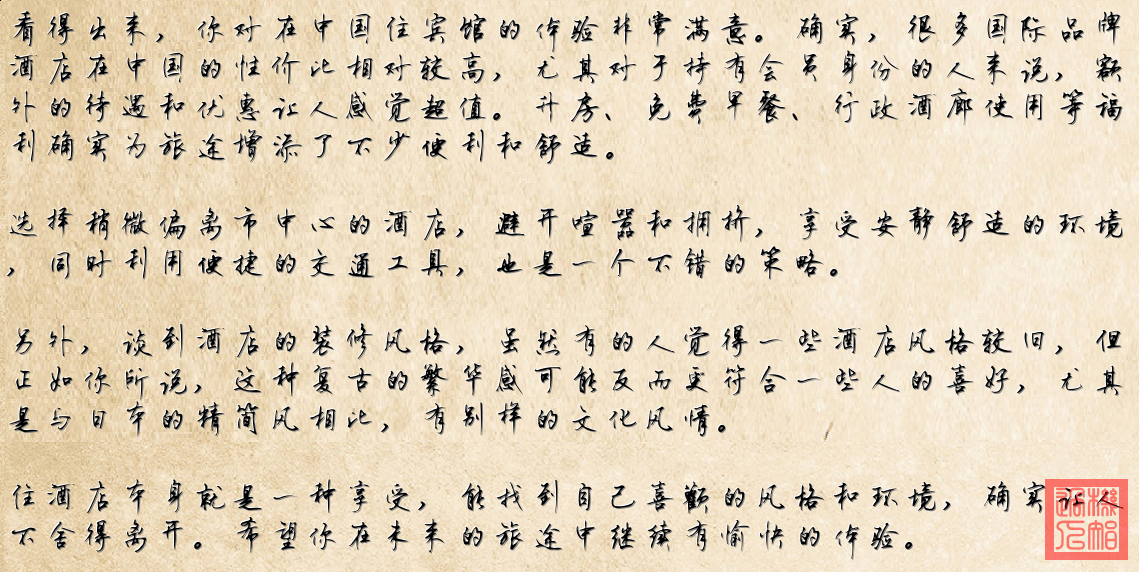 看得出来，你对在中国住宾馆的体验非常满意。确实，很多国际品牌
酒店在中国的性价比相对较高，尤其对于持有会员身份的人来说，额
外的待遇和优惠让人感觉超值。升房、免费早餐、行政酒廊使用等福
利确实为旅途增添了不少便利和舒适。
选择稍微偏离市中心的酒店，避开喧嚣和拥挤，享受安静舒适的环境
，同时利用便捷的交通工具，也是一个不错的策略。
另外，谈到酒店的装修风格，虽然有的人觉得一些酒店风格较旧，但
正如你所说，这种复古的繁华感可能反而更符合一些人的喜好，尤其
是与日本的精简风相比，有别样的文化风情。
住酒店本身就是一种享受，能找到自己喜欢的风格和环境，确实让人
不舍得离开。希望你在未来的旅途中继续有愉快的体验。